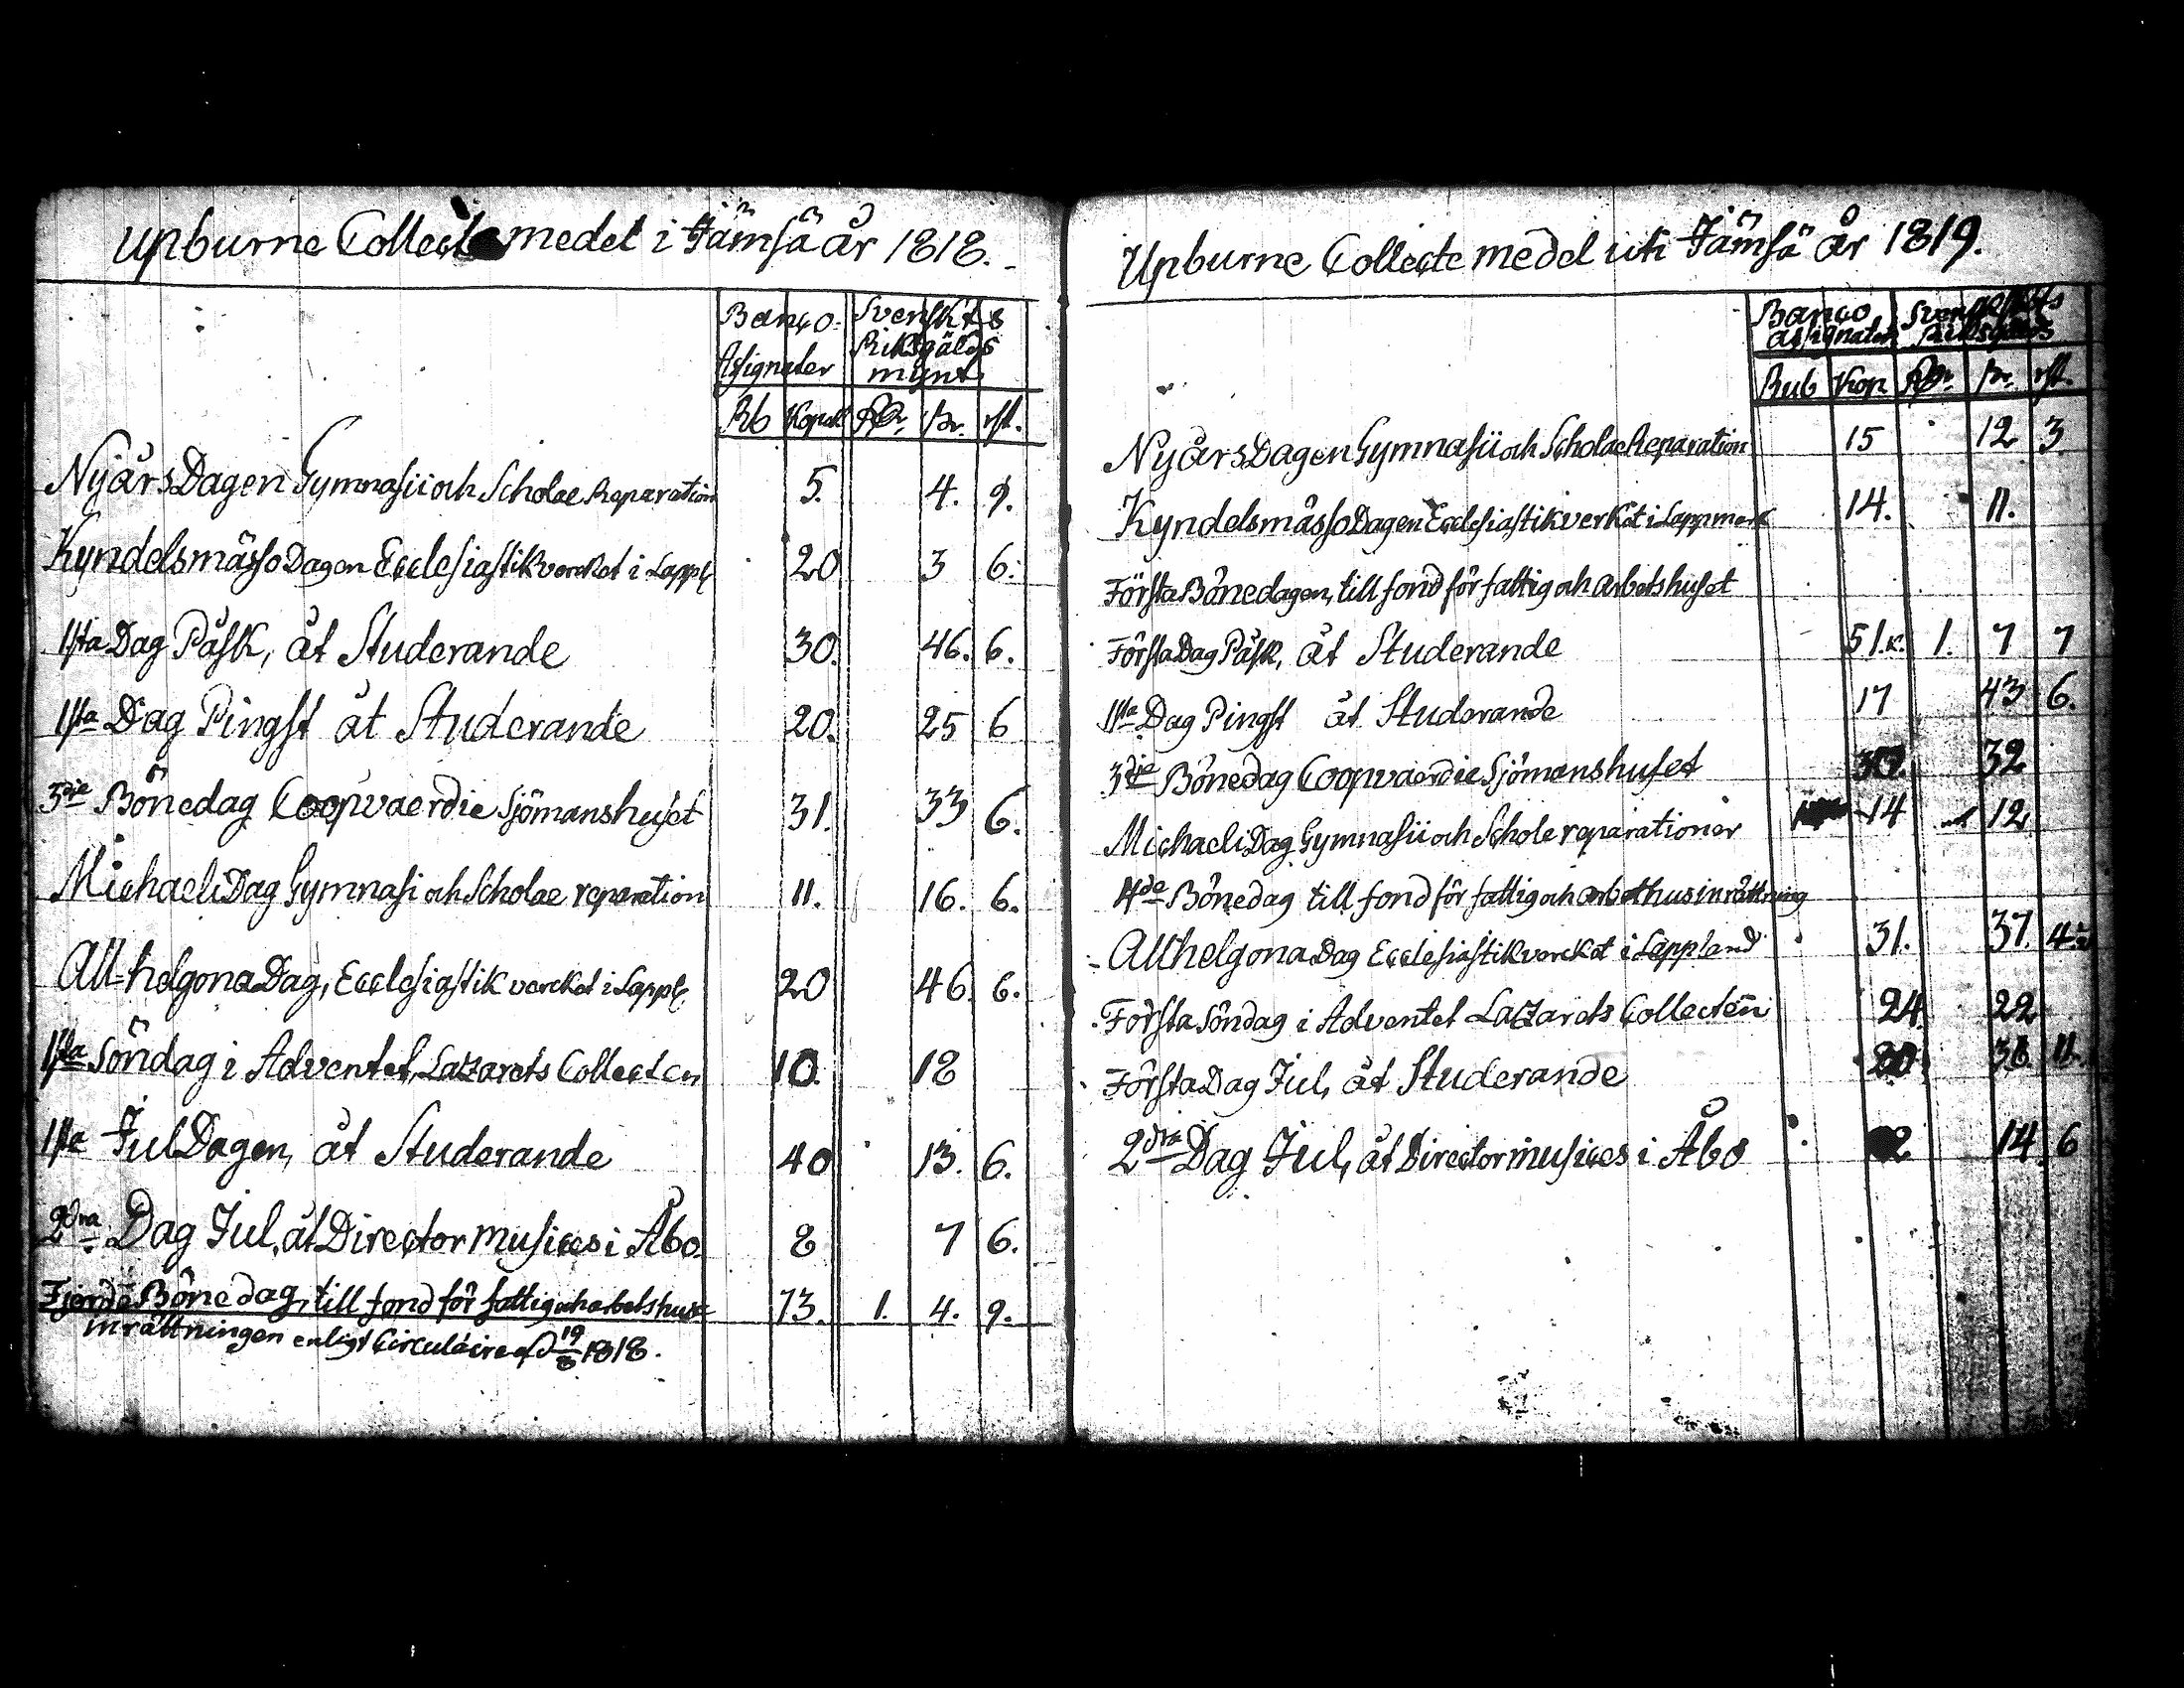 Upburne Collecte medel i Jämsä år 1818.
Banco Assignater
Svenskt Riksgälds mynt
Rb Kopek Rdr. sk. rst.
NyårsDagen Gymnasii och Scholae Reparation 5. 4. 9.
KyndelsmässoDagen Ecclesiastikverket i Lappl 20 3 6.
1sta Dag Påsk, åt Studerande 30. 46. 6.
1sta Dag Pingst åt Studerande 20. 25 6
3die Bönedag Coopvaerdie Sjömanshuset 31. 33 6.
MichaeliDag Gymnasi och Scholae reparation 11. 16. 6.
All-helgonaDag, Ecclesiastik verket i Lappl. 20 46. 6.
1sta Söndag i Adventet, Lazarets Collecten 10. 18
1sta JulDagen, åt Studerande 40 13. 6.
2dra Dag Jul, åt Director musices i Åbo. 8 7 6.
Fjerde Bönedag, till fond för fattig och arbetshus 73. 1. 4. 9.
inrättningen enligt Circulaire af d 19/8 1818.
Upburne Collecte medel uti Jämsä år 1819.
Banco Assignater
Svenskt Riksgälds
Rub Kop Rdr. sk. rst.
NyårsDagen Gymnasii och Scholae Reparation 15 12 3.
KyndelsmässoDagen Ecclesiastikverket i Lappmark 14. 11.
Första Bönedagen, till fond för fattig och arbetshuset
Första Dag Påsk, åt Studerande 51.K. 1. 7 7
1sta Dag Pingst åt Studerande 17 43. 6.
3die Bönedag Coopvaerdie Sjömanshuset 32
MichaeliDag Gymnasii och Schole reparationer 14 12
4de Bönedag till fond för fattig och arbethusinrättning
AllhelgonaDag Ecclesiastikverket i Lappland 31. 37. 4
Första Söndag i Adventet Lazarets Collecten 24. 22
Första Dag Jul, åt Studerande 11.
2dra Dag Jul, åt Director musices i Åbo 2 14. 6